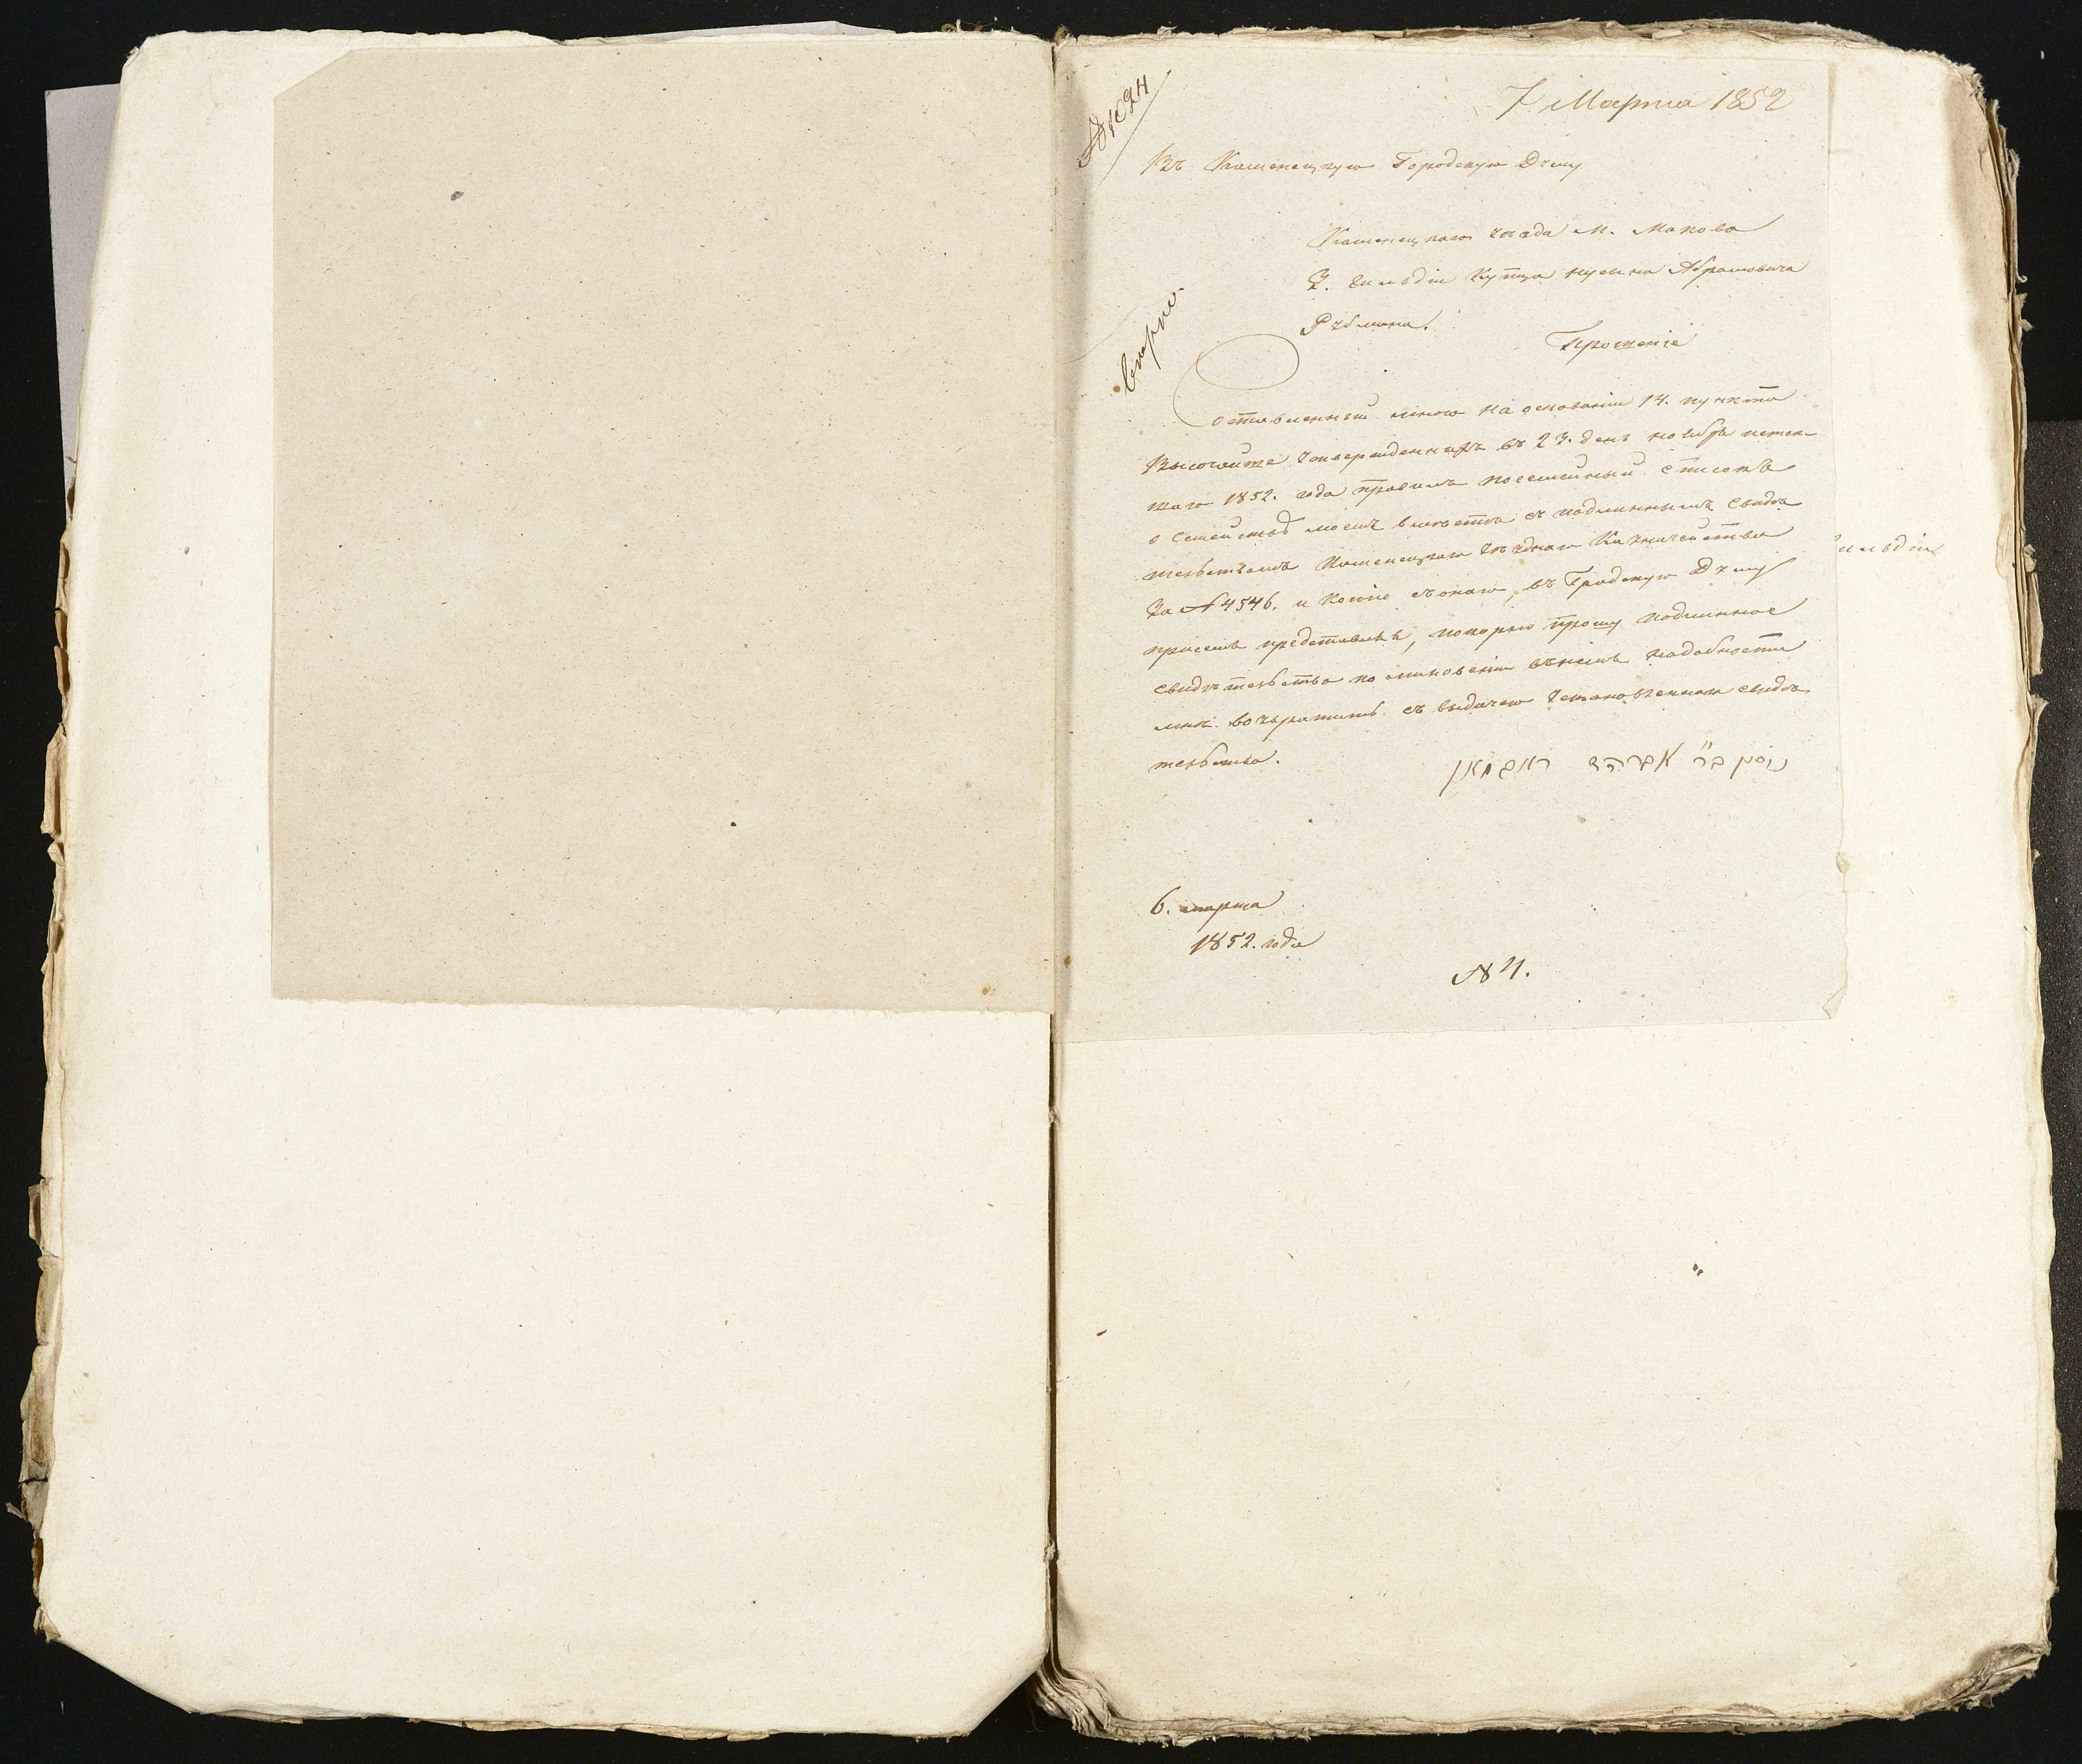 № 1694
7 Марта 1852
Въ Каменецкую Городскую Думу
Каменецкаго уезда М. Макова
3. гильдіи Купца Нусина Абрамовича
Рубмана.
Прошеніе
Скоро
Составленный мною на основаніи 14. пункта
Высочайше утвержденныхъ въ 23. день ноября истек-
шаго 1852. года правилъ посемейный списокъ
о Семействѣ моемъ вместѣ съ подлиннымъ Свидѣ
тельствомъ Каменецкаго Уезднаго Казначейства
За №4546. и копію съ онаго, въ Градскую Думу
присемъ представляя, покорно прошу подлинное
свидѣтельство по миновеніи въ немъ надобности
мнѣ возвратить съ выдачею установленнаго свидѣ
тельства.
נוסן בר׳ אברהם ראבמאן
6. марта
1852. года
№ 4.
ильдіи